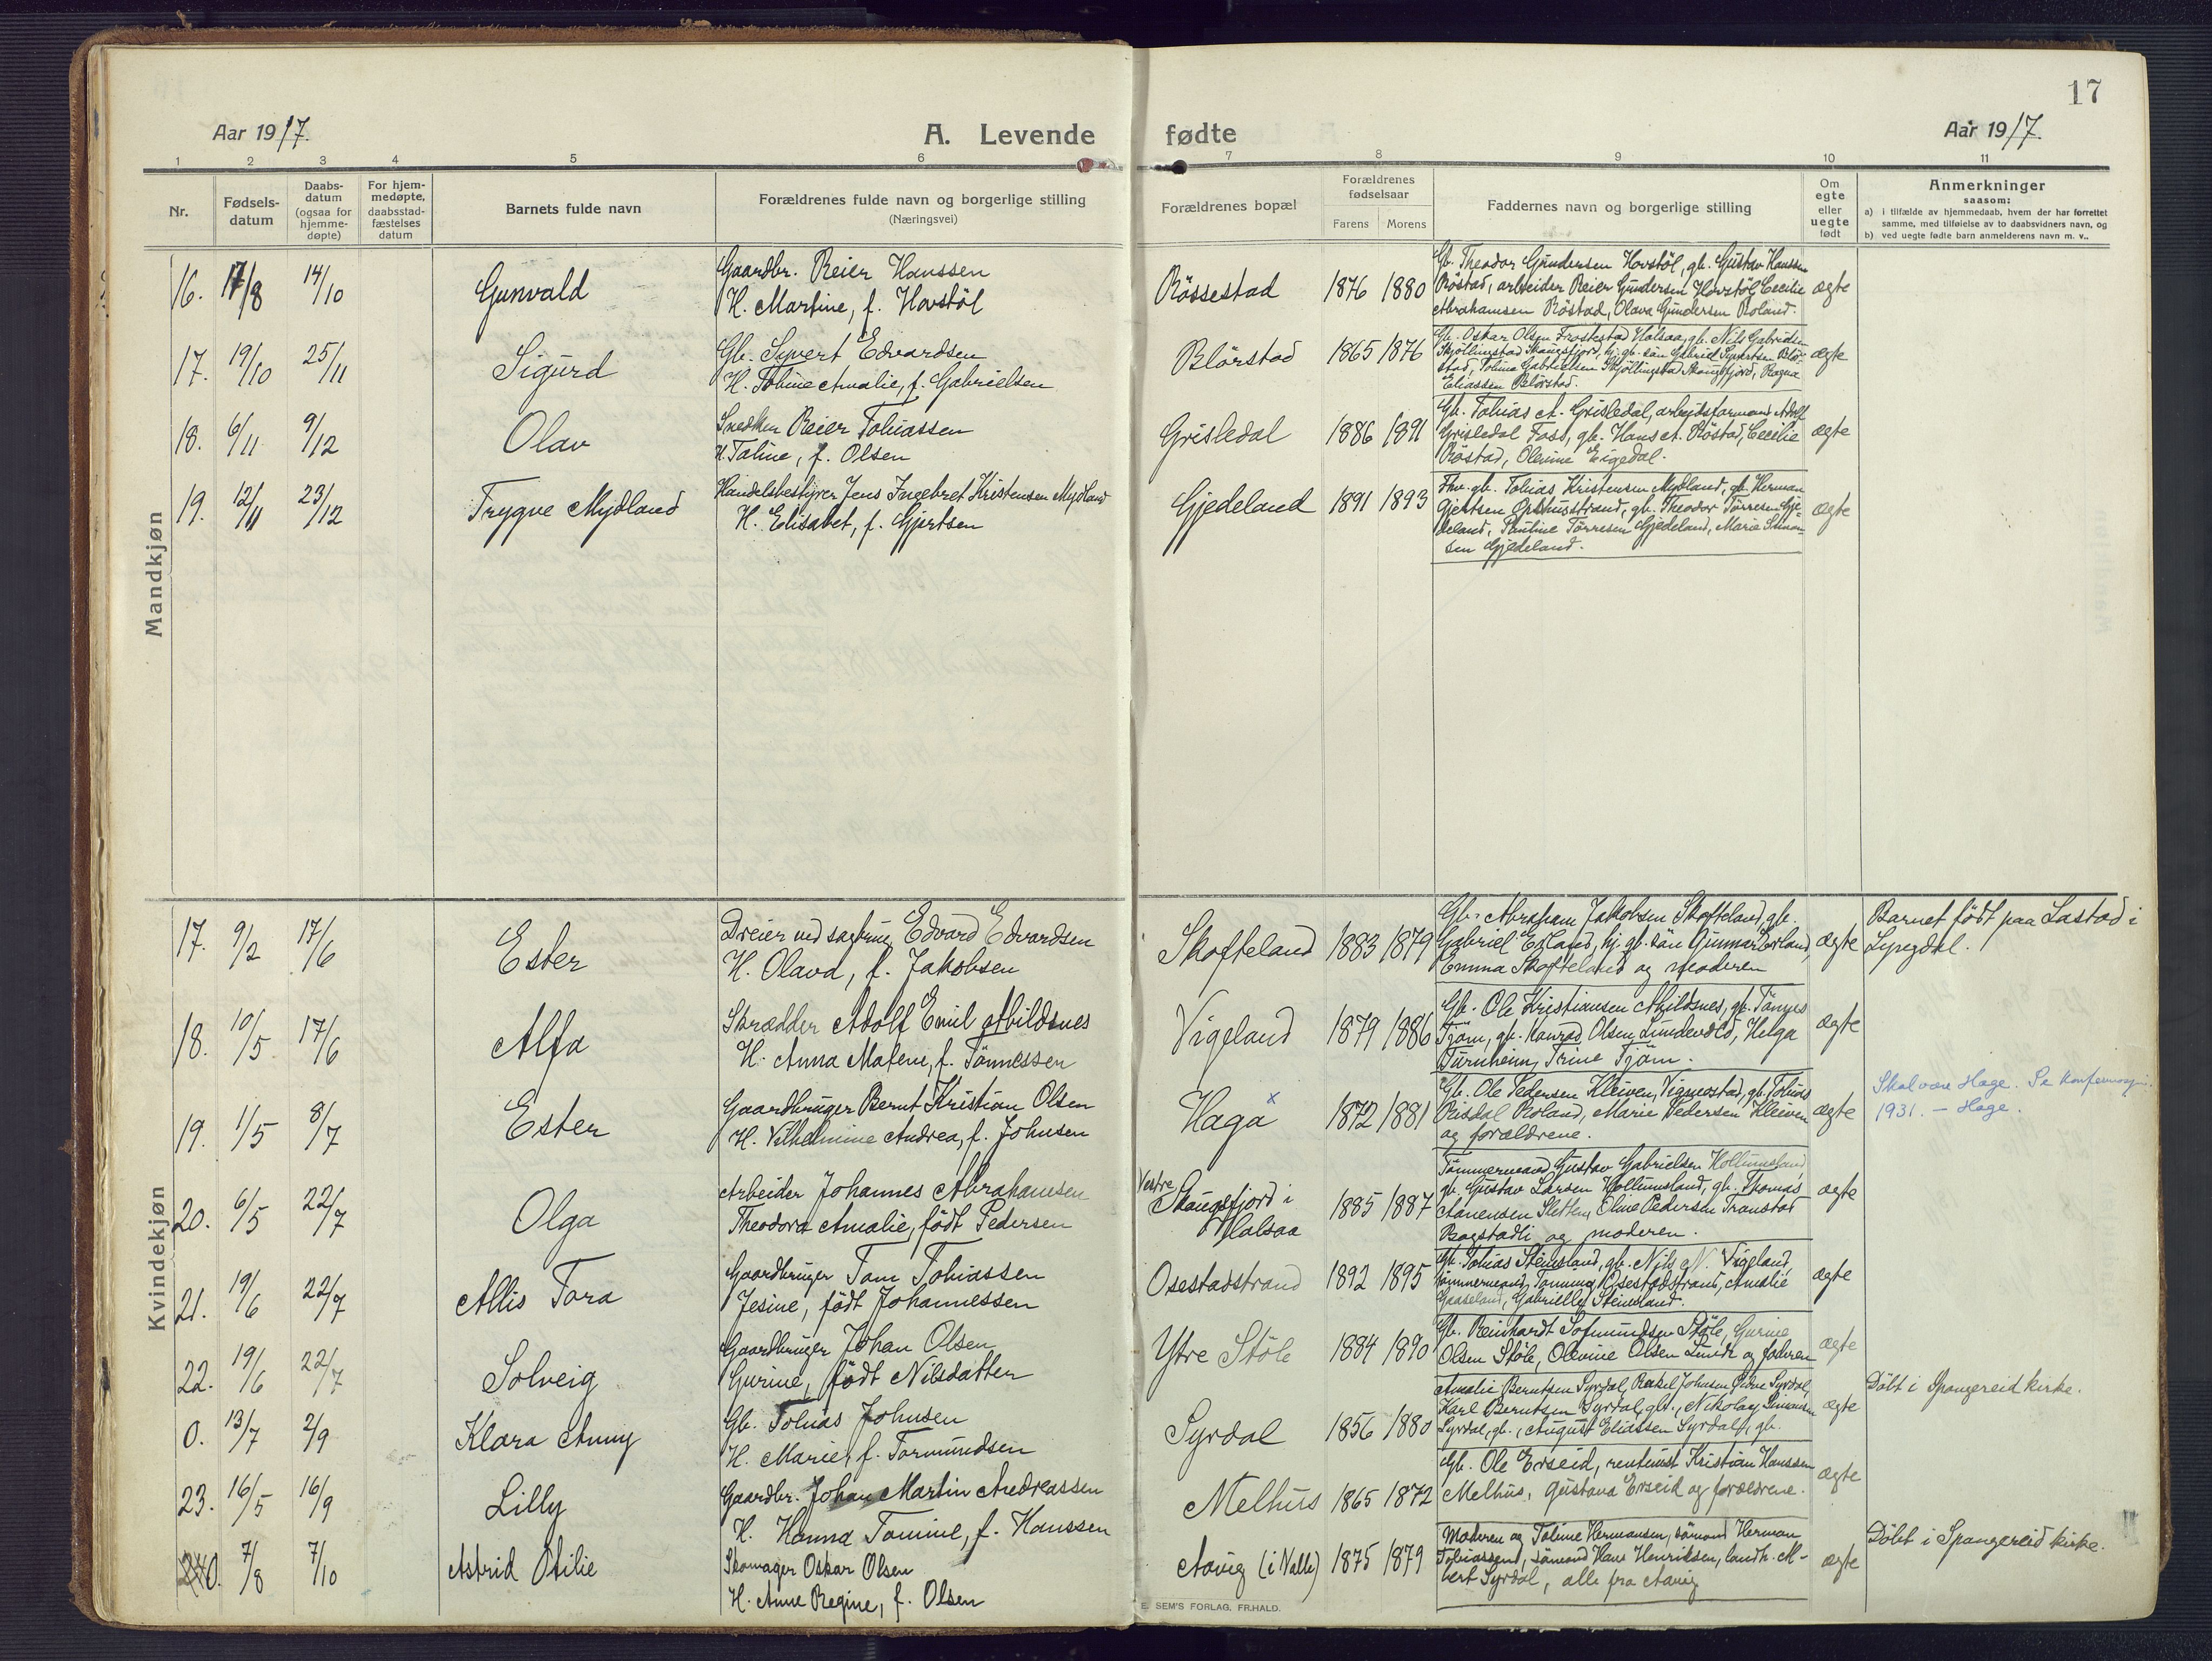 17
Aar 1917.
A. Levende fødte
Aar 1917.
1 2 3 4 5 6 7 8 9 10 11
Nr.
Fødsels-
datum
Daabs-
datum
(ogsaa for
hjemme-
døpte)
For hjem-
medøpte,
daabsstad-
fæstelses
datum
Barnets fulde navn
Forældrenes fulde navn og borgerlige stilling
(Næringsvei)
Forældrenes bopæl
Forældrenes
fødselsaar
Farens Morens
Faddernes navn og borgerlige stilling
Om
egte
eller
uegte
født
Anmerkninger
saasom:
a) i tilfælde av hjemmedaab, hvem der har forrettet
samme, med tilføielse av to daabsvidners navn, og
b) ved uegte fødte barn anmelderens navn m. v..
Mandkjøn
16. 17/8 14/10 Gunvald
Gaardbr. Reier Hanssen
H. Martine, f. Hovstöl
Rössestad 1876 1880
Gb. Theodor Gundersen Hovstöl, gb. Gustav Hanssen
Röstad, arbeider Reier Gundersen Hovstöl, Cecilie
Abrahamsen Röstad, Olava Gundersen Roland.
ægte
17. 19/10 25/11 Sigurd
Gb. Syvert Edvardsen
H. Toline Amalie, f. Gabrielsen
Blörstad 1865 1876
Gb. Oskar Olsen Frostestad Halsaa, gb. Nils Gabrielsen
Skjöllingstad Skaugsfjord, hj. gb. sön Gabriel Syvertsen Blör-
stad, Toline Gabrielsen Skjöllingstad Skaugsfjord, Ragna
Eliassen Blörstad.
ægte
18. 6/11 9/12 Olav
Snedker Reier Tobiassen
H. Taline, f. Olsen
Grisledal 1886 1891
Gb. Tobias A. Grisledal, arbeidsformand Adolf
Grisledal Foss, gb. Hans A. Röstad, Cecilie
Röstad, Olevine Eigedal.
ægte
19. 12/11 23/12 Trygve Mydland
Handelsbestyrer Jens Ingebret Kristensen Mydland
H. Elisabet, f. Gjertsen
Gjedeland 1891 1893
Fhv. gb. Tobias Kristensen Mydland, gb. Herman
Gjertsen strand, gb. Theodor Törresen Gje-
deland, Pauline Törresen Gjedeland, Marie Simon-
sen Gjedeland.
ægte
Kvindekjøn
17. 9/2 17/6 Ester
Dreier ved sagbrug Edvard Edvardsen
H. Olava, f. Jakobsen
Skofteland 1883 1879
Gb. Abraham Jakobsen Skofteland, gb.
Gabriel Erland, hj. gb. sön Gunnar Erland,
Emma Skofteland og moderen
ægte
Barnet födt paa Lastad i
Lyngdal.
18. 10/5 17/6 Alfa
Skrædder Adolf Emil Abildsnes
H. Anna Malene, f. Tönnessen
Vigeland 1879 1886
Gb. Ole Kristiansen Abildsnes, gb. Tönnes
Tjöm, gb. Konrad Olsen Lundevold, Helga
Turnheim, Trine Tjöm.
ægte
19. 1/5 8/7 Ester
Gaardbruger Bernt Kristian Olsen
H. Vilhelmine Andrea, f. Johnsen
Haga x 1872 1881
Gb. Ole Pedersen Kleiven, Vigmostad, gb. Tobias
Risdal Roland, Marie Pedersen Kleiven
og forældrene.
ægte
Skal være Hage. Se konfermasj.
1931. – Hage.
20. 6/5 22/7 Olga
Arbeider Johannes Abrahamsen
Theodora Amalie, födt Pedersen
Vestre
Skaugsfjord i
Halsaa
1885 1887
Tömmermand Gustav Gabrielsen Hollumsland,
gb. Gustav Larsen Hollumsland, gb. Thomas
Aanensen Sletten, Oline Pedersen Transtad
Bagstadli og moderen.
ægte
21. 19/6 22/7 Allis Tora
Gaardbruger Tom Tobiassen
Jesine, födt Johannessen
Osestadstrand 1892 1895
Gb. Tobias Steinsland, gb. Nils N. Vigeland,
tömmermand Tommy Osestadstrand, Amalie
Gaaseland, Gabrielle Steinsland.
ægte
22. 19/6 22/7 Solveig
Gaardbruger Johan Olsen
Gurine, födt Nilsdatter
Ytre Stöle 1884 1890
Gb. Reinhardt Sofmundsen Stöle, Gurine
Olsen Stöle, Olevine Olsen Lunde og faderen
ægte
0. 13/7 2/9 Klara Anny
Gb. Tobias Johnsen
H. Marie, f. Tormundsen
Syrdal 1856 1880
Amalie Berntsen Syrdal, Rakel Johnsen Syrdal,
Karl Berntsen Syrdal, gb., Nikolay Simonsen
Syrdal, gb., August Eliassen Syrdal, gb.
ægte
Döbt i Spangereid kirke.
23. 16/5 16/9 Lilly
Gaardbr. Johan Martin Andreassen
H. Hanna Tomine, f. Hanssen
Melhus 1865 1872
Gb. Ole Erseid, rentenist Kristian Hanssen
Melhus, Gustava Erseid og forældrene.
ægte
0. 7/8 7/10 Astrid Otilie
Skomager Oskar Olsen
H. Anne Regine, f. Olsen
Aavig (i Valle) 1875 1879
Moderen og Toline Hermansen, sömand Herman
Tobiassen, sömand Hans Henriksen, landh. Al-
bert Syrdal, alle fra Aavig
ægte
Döbt i Spangereid kirke.
E. SEM'S FORLAG, FR.HALD.